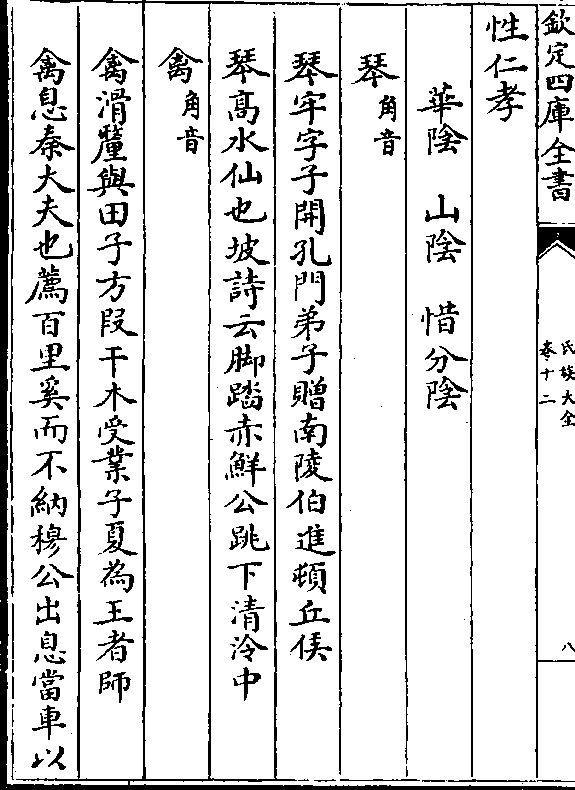 欽定四庫全書
氏族大全
卷十二
八
性仁孝
華陰　山陰　惜分陰
琴角音
琴牢字子開孔門弟子贈南陵伯進頓丘侯
琴高水仙也坡詩云脚踏赤鯶公跳下清泠中
禽角音
禽滑釐與田子方段干木受業子夏為王者師
禽息秦大夫也薦百里奚而不納穆公出息當車以